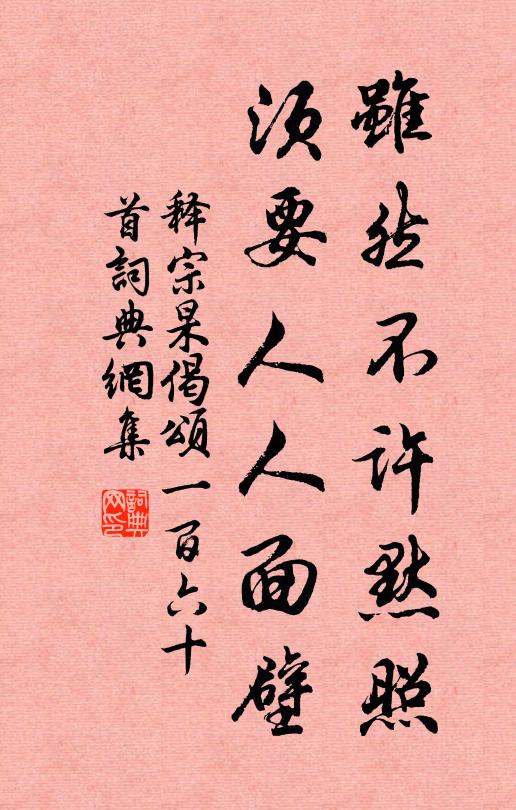 雖然不許默照
須要人人面壁
释宗杲偈頌一百六十
首詞典網集
詞典網印